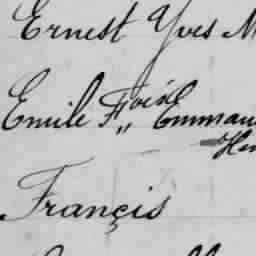 Ernest Yves M
Emile F„ Emmanu
Françis